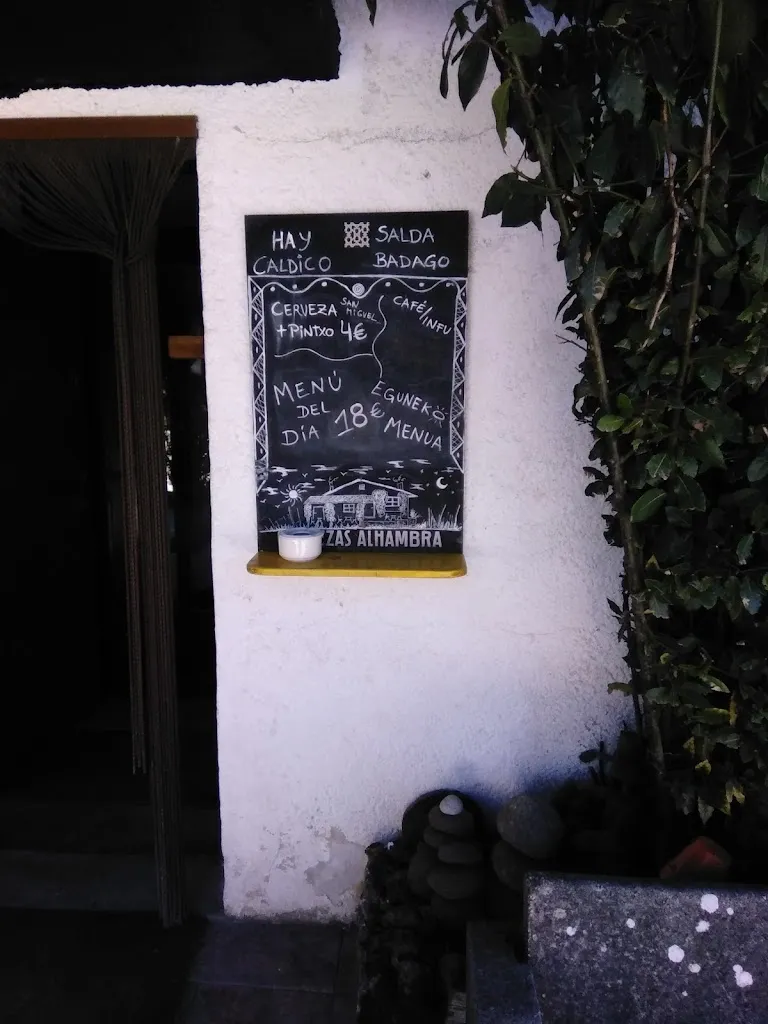 HAY
CALDICO
SALDA
BADAGO
CERVEZA SAN MIGUEL
+ PINTXO 4€
CAFÉ/INFU
MENÚ
DEL
DÍA
18€
EGUNEKO
MENUA
ZAS ALHAMBRA